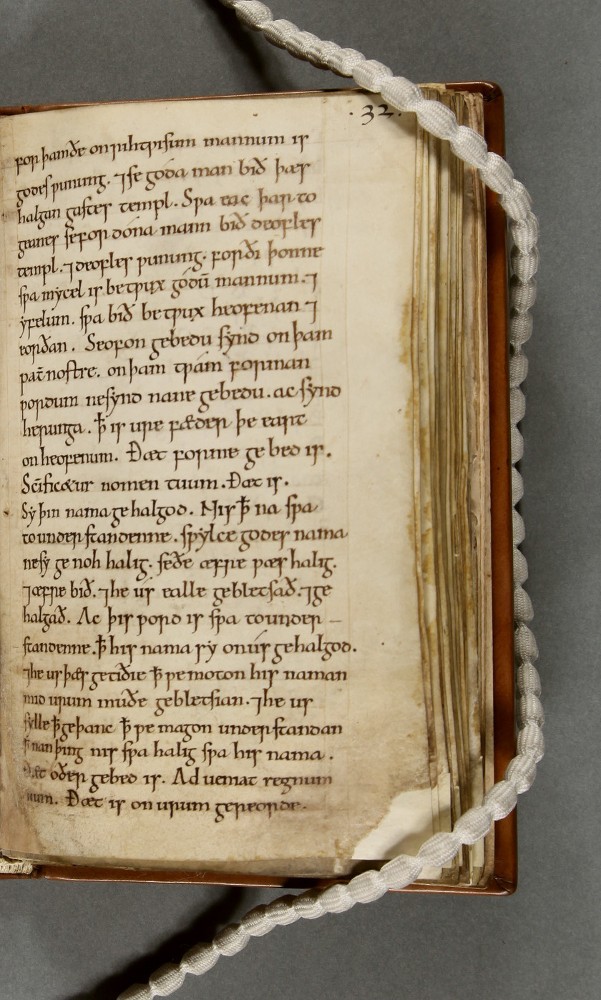 ·32·
forþamðe on rihtƿisum mannum is
godes ƿunung. ⁊ se goda man bið þæs
halgan gastes templ. Sƿa eac þær to
geanes se fordóna mann bið deofles
templ. ⁊ deofles ƿunung. forði þonne
sƿa mycel is betƿux gódū mannum. ⁊
yfelum. sƿa bið betƿux heofenan ⁊
eorðan. Seofon gebedu synd on þam
pat̄ nostre. on þam tƿám forman
ƿordum ne synd nane gebedu. ac synd
herunga. ꝥ is ure fæder þe eart
on heofenum. Ðæt forme gebed is.
Sc̄ificetur nomen tuum. Ðæt is.
Sy þin nama gehalgod. Nis ꝥ na sƿa
to understandenne. sƿylce godes nama
ne sy genoh halig. seðe æfre ƿæs halig.
⁊ æfre bið. ⁊ he ús ealle gebletsað. ⁊ ge
halgað. Ac þis ƿord is sƿa to under
standenne. ꝥ his nama sy on ús gehalgod.
⁊ he us þæs getiðie ꝥ ƿe moton his naman
mid urum muðe gebletsian. ⁊ he us
sylle ꝥ geþanc ꝥ ƿe magon understandan
ꝥ nan þing nis sƿa halig sƿa his nama.
Ðæt oðer gebed is. Adueniat regnum
tuum. Ðæt is on urum gereorde.